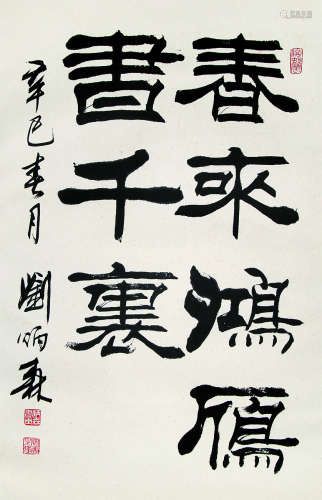 春來鴻雁
書千裏
辛巳春月 劉炳森